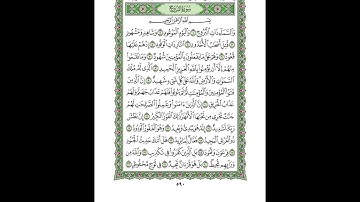 سُورَةُ البُرُوجِ
بِسْمِ اللَّهِ الرَّحْمَٰنِ الرَّحِيمِ
وَالسَّمَاءِ ذَاتِ الْبُرُوجِ ١ وَالْيَوْمِ الْمَوْعُودِ ٢ وَشَاهِدٍ وَمَشْهُودٍ ٣
قُتِلَ أَصْحَٰبُ الْأُخْدُودِ ٤ النَّارِ ذَاتِ الْوَقُودِ ٥ إِذْ هُمْ عَلَيْهَا
قُعُودٌ ٦ وَهُمْ عَلَىٰ مَا يَفْعَلُونَ بِالْمُؤْمِنِينَ شُهُودٌ ٧ وَمَا نَقَمُوا
مِنْهُمْ إِلَّا أَن يُؤْمِنُوا بِاللَّهِ الْعَزِيزِ الْحَمِيدِ ٨ الَّذِي لَهُ مُلْكُ
السَّمَٰوَٰتِ وَالْأَرْضِ وَاللَّهُ عَلَىٰ كُلِّ شَيْءٍ شَهِيدٌ ٩ إِنَّ الَّذِينَ
فَتَنُوا الْمُؤْمِنِينَ وَالْمُؤْمِنَٰتِ ثُمَّ لَمْ يَتُوبُوا فَلَهُمْ عَذَابُ جَهَنَّمَ وَلَهُمْ
عَذَابُ الْحَرِيقِ ١٠ إِنَّ الَّذِينَ ءَامَنُوا وَعَمِلُوا الصَّٰلِحَٰتِ لَهُمْ
جَنَّٰتٌ تَجْرِي مِن تَحْتِهَا الْأَنْهَٰرُ ذَٰلِكَ الْفَوْزُ الْكَبِيرُ ١١ إِنَّ بَطْشَ
رَبِّكَ لَشَدِيدٌ ١٢ إِنَّهُ هُوَ يُبْدِئُ وَيُعِيدُ ١٣ وَهُوَ الْغَفُورُ الْوَدُودُ ١٤
ذُو الْعَرْشِ الْمَجِيدُ ١٥ فَعَّالٌ لِّمَا يُرِيدُ ١٦ هَلْ أَتَىٰكَ حَدِيثُ الْجُنُودِ ١٧
فِرْعَوْنَ وَثَمُودَ ١٨ بَلِ الَّذِينَ كَفَرُوا فِي تَكْذِيبٍ ١٩ وَاللَّهُ مِن
وَرَائِهِم مُّحِيطٌ ٢٠ بَلْ هُوَ قُرْءَانٌ مَّجِيدٌ ٢١ فِي لَوْحٍ مَّحْفُوظٍ ٢٢
٥٩٠